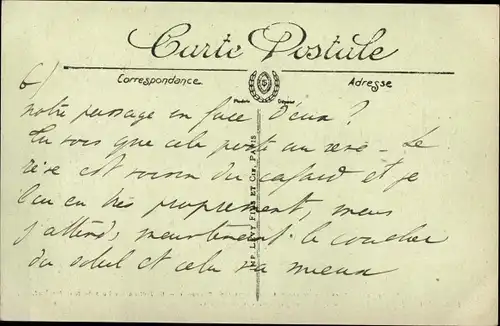 Carte Postale
Correspondance
Adresse
Modèle Déposé
IMP. LEVY FILS ET CIE, PARIS
6/
notre passage en face d'eux ?
Tu vois que cela porte au rêve - Le
rêve est voisin du cafard et je
l'ai eu très proprement, mais
j'attends maintenant le coucher
du soleil et cela va mieux